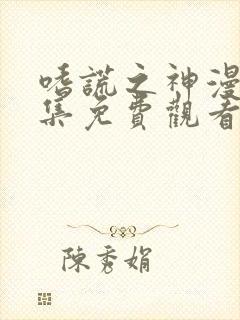 嗜謊之神漫
集免費觀看
陳秀娟